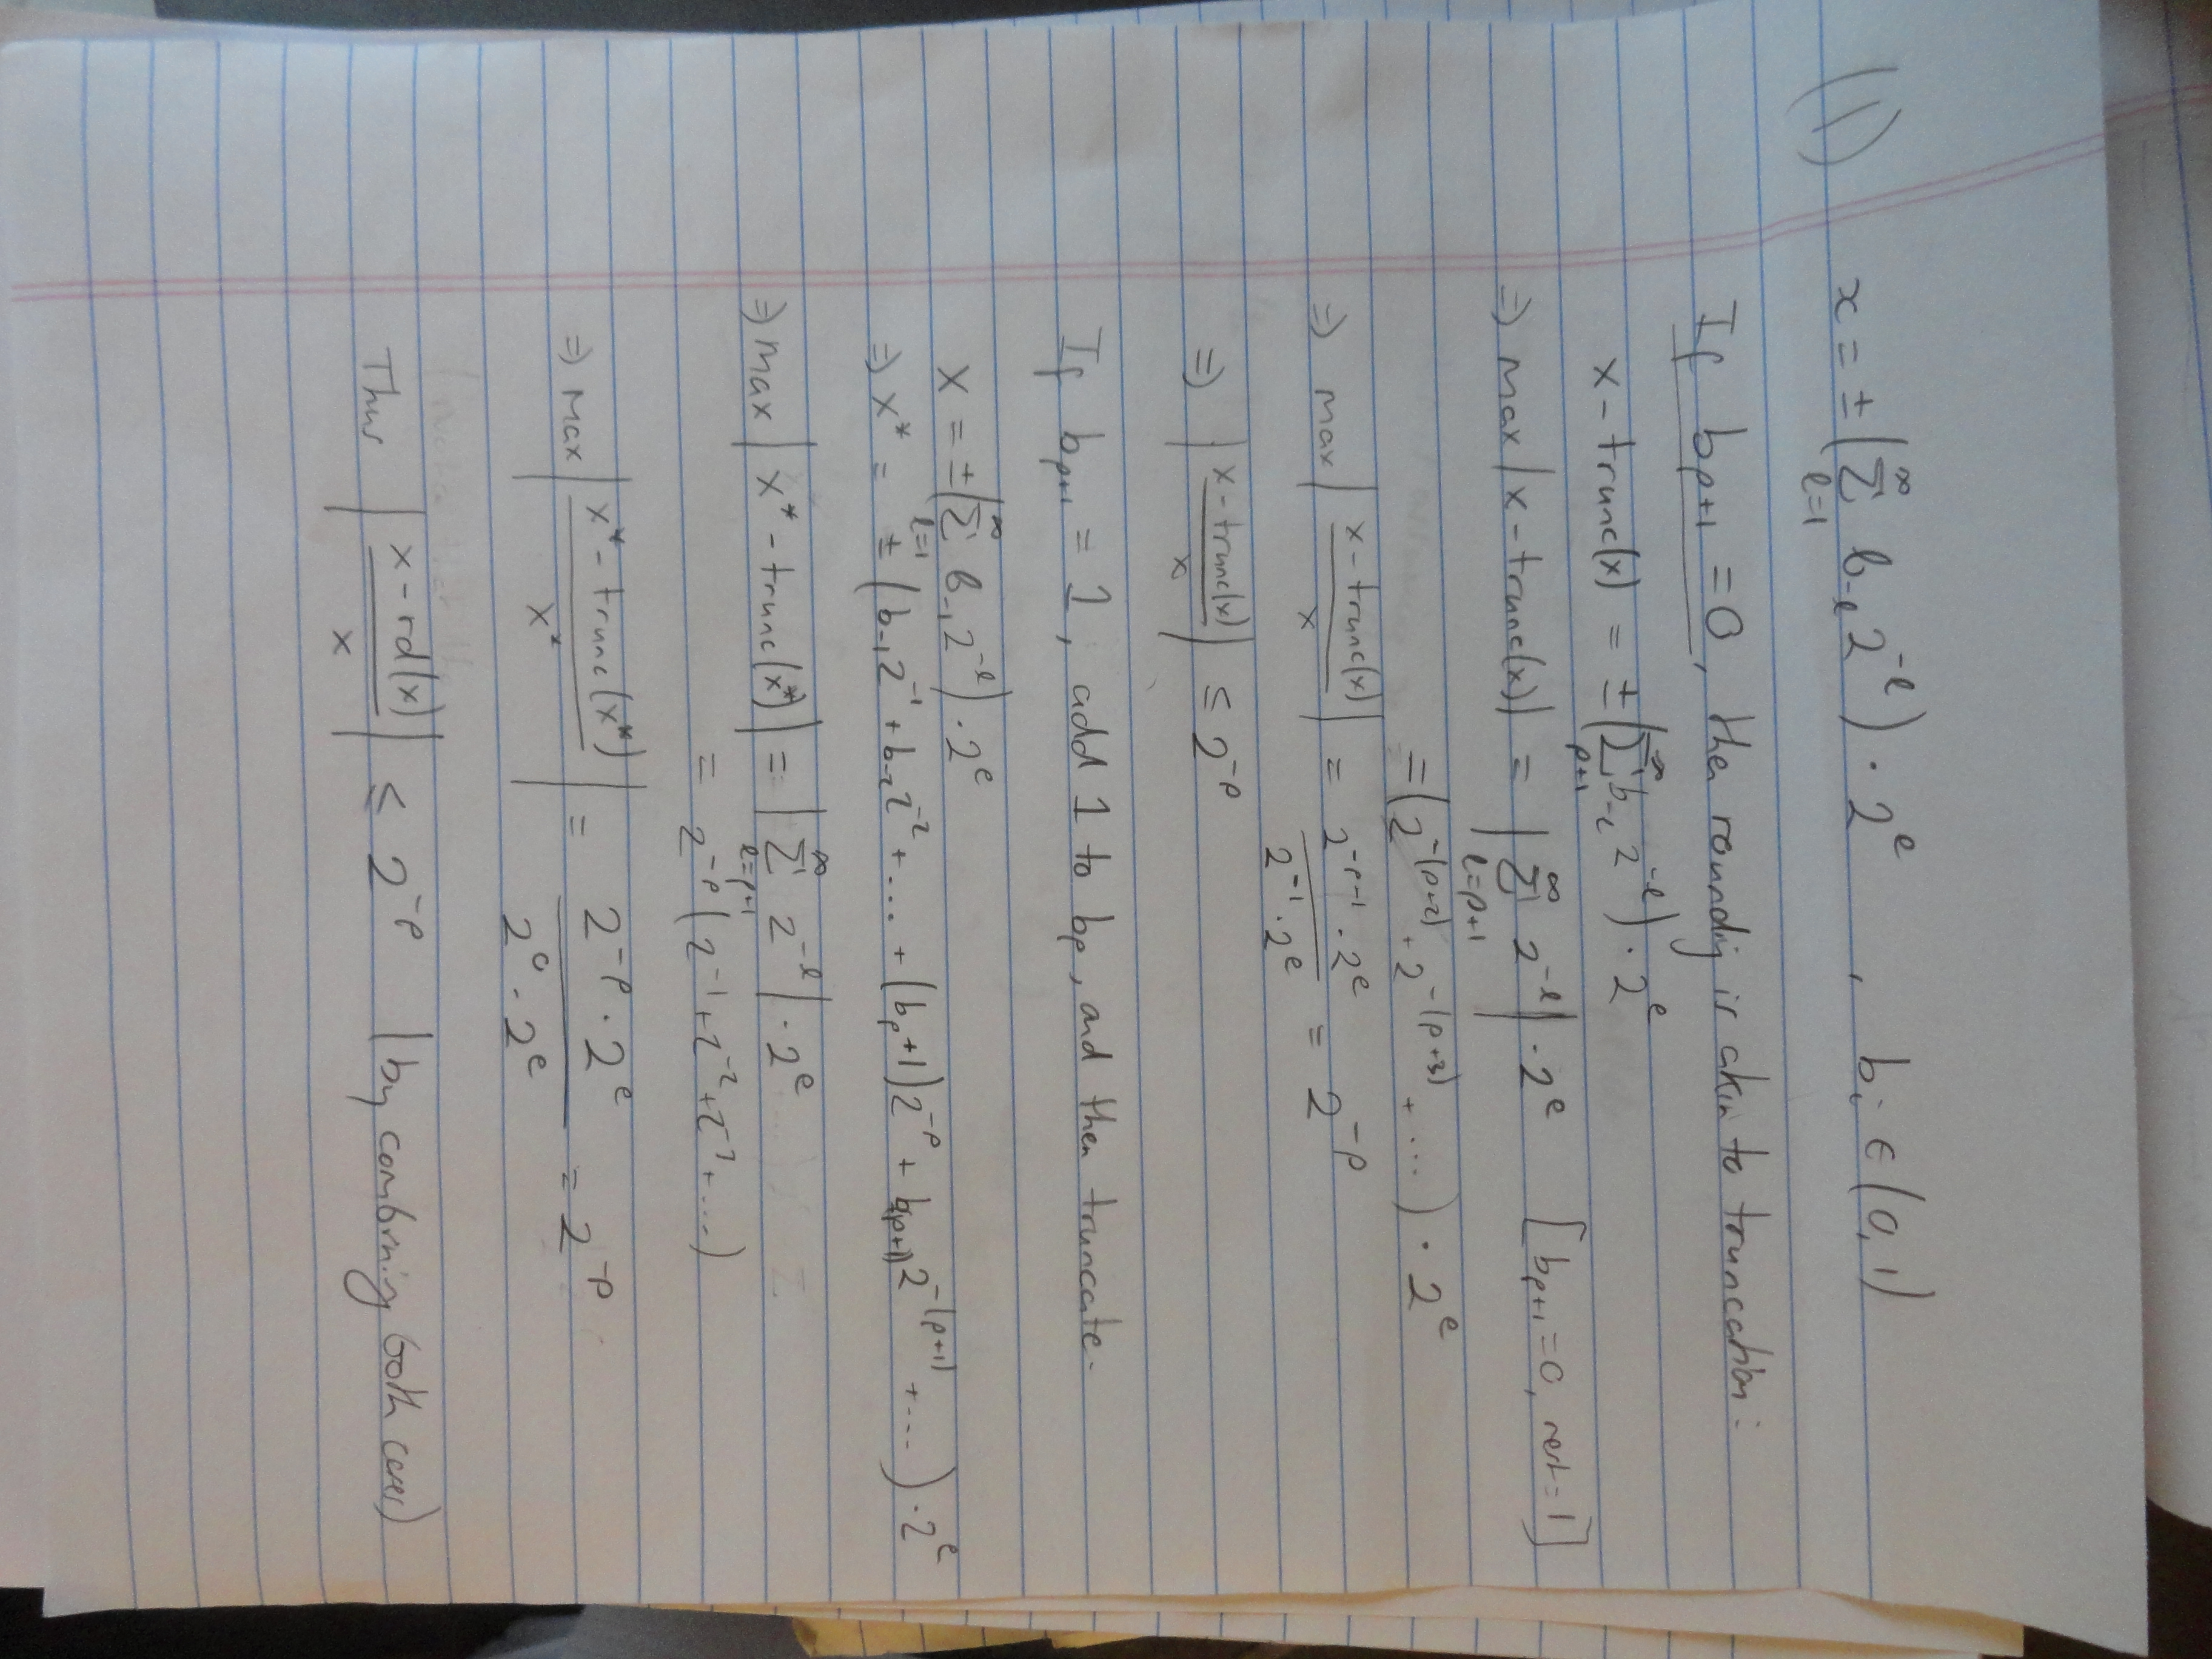 (1) x = ± (∑_{ℓ=1}^{∞} b_{-ℓ} 2^{-ℓ}) · 2^e , b_i ∈ (0,1)
If b_{p+1} = 0, the rounding is akin to truncation:
x - trunc(x) = ± (∑_{p+1}^{∞} b_{-ℓ} 2^{-ℓ}) · 2^e
⇒ max |x - trunc(x)| = |∑_{ℓ=p+1}^{∞} 2^{-ℓ}| · 2^e [b_{p+1} = 0, rest = 1]
= (2^{-(p+2)} + 2^{-(p+3)} + ...) · 2^e
⇒ max |(x - trunc(x))/x| = (2^{-p-1} · 2^e)/(2^{-1} · 2^e) = 2^{-p}
⇒ |(x - trunc(x))/x| ≤ 2^{-p}
If b_{p+1} = 1, add 1 to b_p, and then truncate.
x = ± (∑_{ℓ=1}^{∞} b_{-1} 2^{-ℓ}) · 2^e
⇒ x* = ± (b_{-1} 2^{-1} + b_{-2} 2^{-2} + ... + (b_p + 1) 2^{-p} + b_{(p+1)} 2^{-(p+1)} + ...) · 2^e
⇒ max |x* - trunc(x*)| = |∑_{ℓ=p+1}^{∞} 2^{-ℓ}| · 2^e
= 2^{-p} (2^{-1} + 2^{-2} + 2^{-3} + ...)
⇒ max |(x* - trunc(x*))/x*| = (2^{-p} · 2^e)/(2^0 · 2^e) = 2^{-p}
Thus |(x - rd(x))/x| ≤ 2^{-p} (by combining both cases)